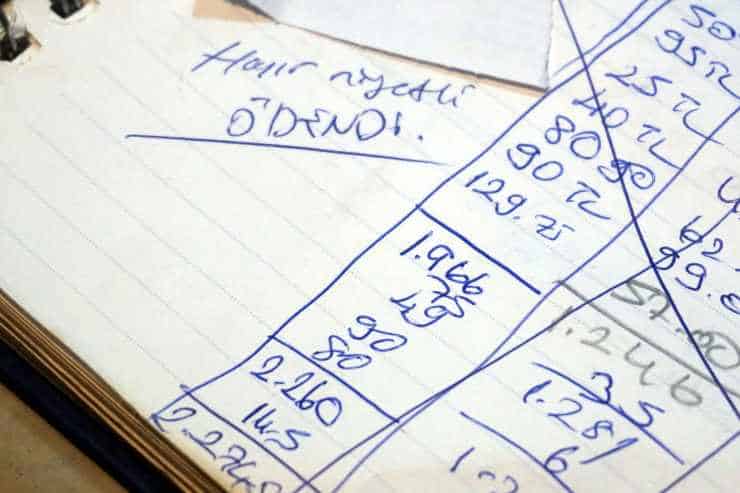 Hayır niyetli
ÖDENDİ.
50
95 TL
25 TL
40 TL
80 90
90 TL
129.75
1.966
75
49
90
80
2.260
14.5
2.274.5
62
57.00
1.246
35
1.281
6